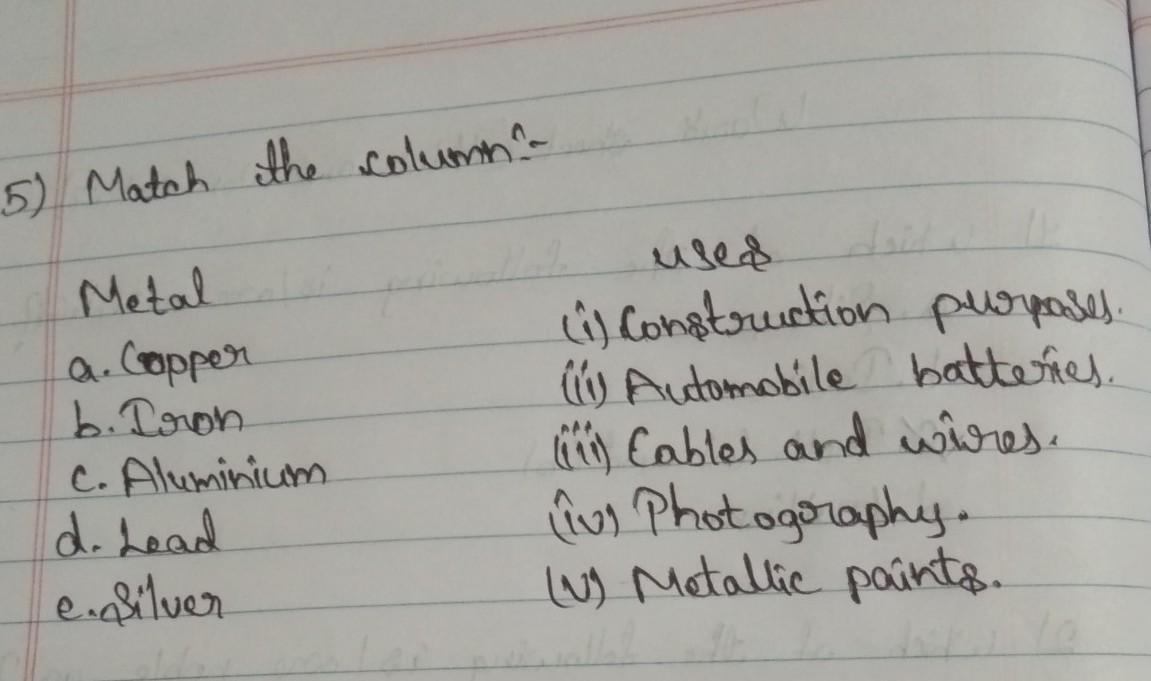 5) Match the column:-
Metal uses
a. Copper (i) Construction purposes.
b. Iron (ii) Automobile batteries.
c. Aluminium (iii) Cables and wires.
d. Lead (iv) Photography.
e. Silver (v) Metallic paints.